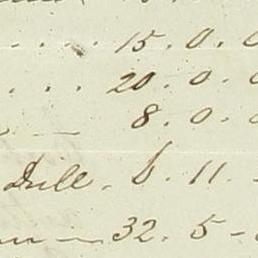 . . . . 15 . 0 . 0
. . . 20 . 0 . 0
8 . 0 . 0
Drill . 6 . 11 .
32 . 5 -